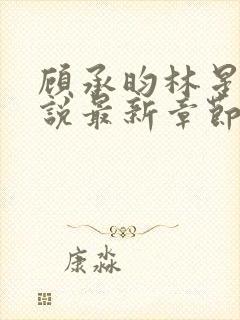 顾承昀林星
說最新章節
康淼